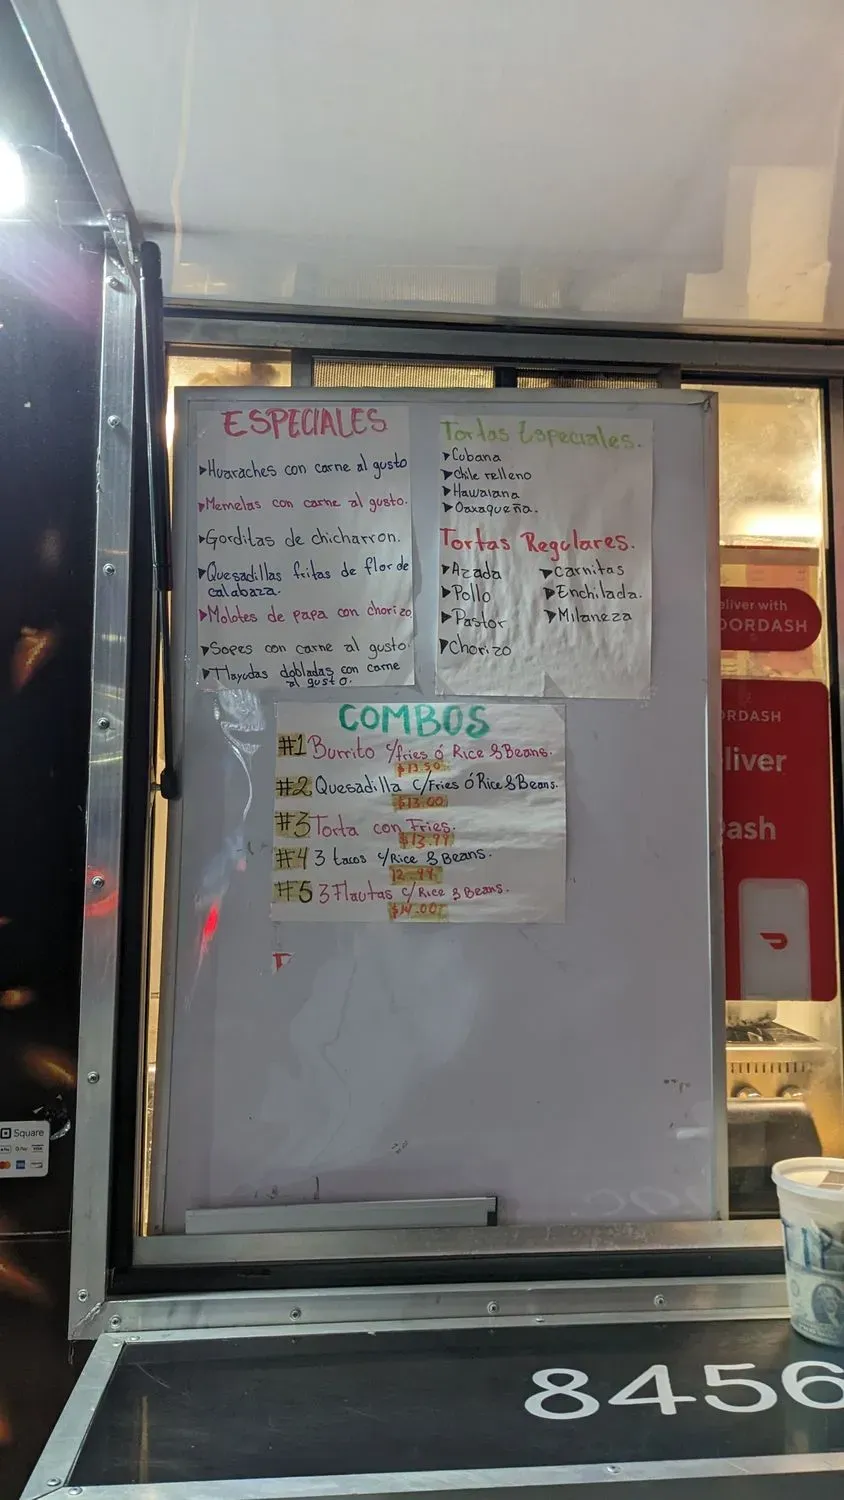 ESPECIALES
Huaraches con carne al gusto
Memelas con carne al gusto.
Gorditas de chicharron.
Quesadillas fritas de flor de
calabaza.
Molotes de papa con chorizo
Sopes con carne al gusto.
Tlayudas dobladas con carne
al gusto.
Tortas Especiales.
Cubana
Chile relleno
Hawaiana
Oaxaqueña.
Tortas Regulares.
Azada
Carnitas
Pollo
Enchilada.
Pastor
Milaneza
Chorizo
COMBOS
#1 Burrito c/fries ó Rice & Beans.
$13.50
#2 Quesadilla c/Fries ó Rice & Beans.
$13.00
#3 Torta con Fries.
$13.99
#4 3 tacos c/Rice & Beans.
12.99
#5 3 Flautas c/Rice & Beans.
$14.00
eliver with
DOORDASH
ORDASH
liver
Dash
Square
Pay
G Pay
VISA
TIP
8456